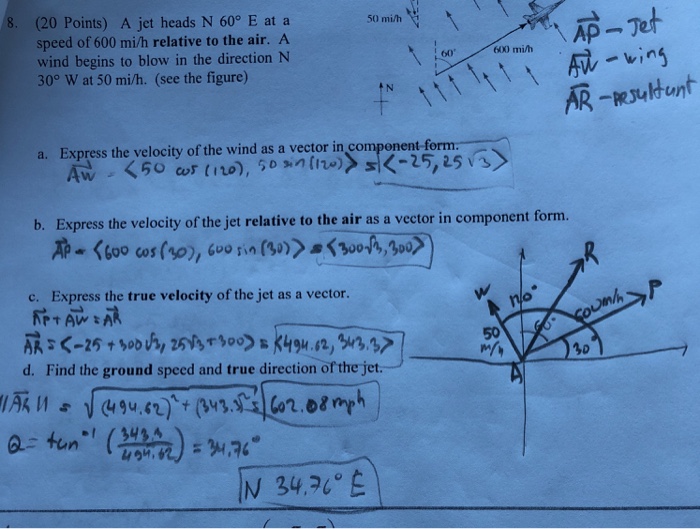 8. (20 Points) A jet heads N 60° E at a
speed of 600 mi/h relative to the air. A
wind begins to blow in the direction N
30° W at 50 mi/h. (see the figure)
50 mi/h
60°
600 mi/h
N
AP - Jet
AW - wing
AR - resultant
a. Express the velocity of the wind as a vector in component form.
AW = <50 cos(120), 50 sin(120)> = <-25, 25√3>
b. Express the velocity of the jet relative to the air as a vector in component form.
AP = <600 cos(30), 600 sin(30)> = <300√3, 300>
c. Express the true velocity of the jet as a vector.
AP + AW = AR
AR = <-25 + 300√3, 25√3 + 300> = <494.62, 343.3>
d. Find the ground speed and true direction of the jet.
||AR|| = √(494.62)² + (343.3)² = 602.08 mph
Q = tan⁻¹ (343.3/494.62) = 34.76°
N 34.76° E
W
R
P
600 mi/h
50
m/h
60°
30°
A